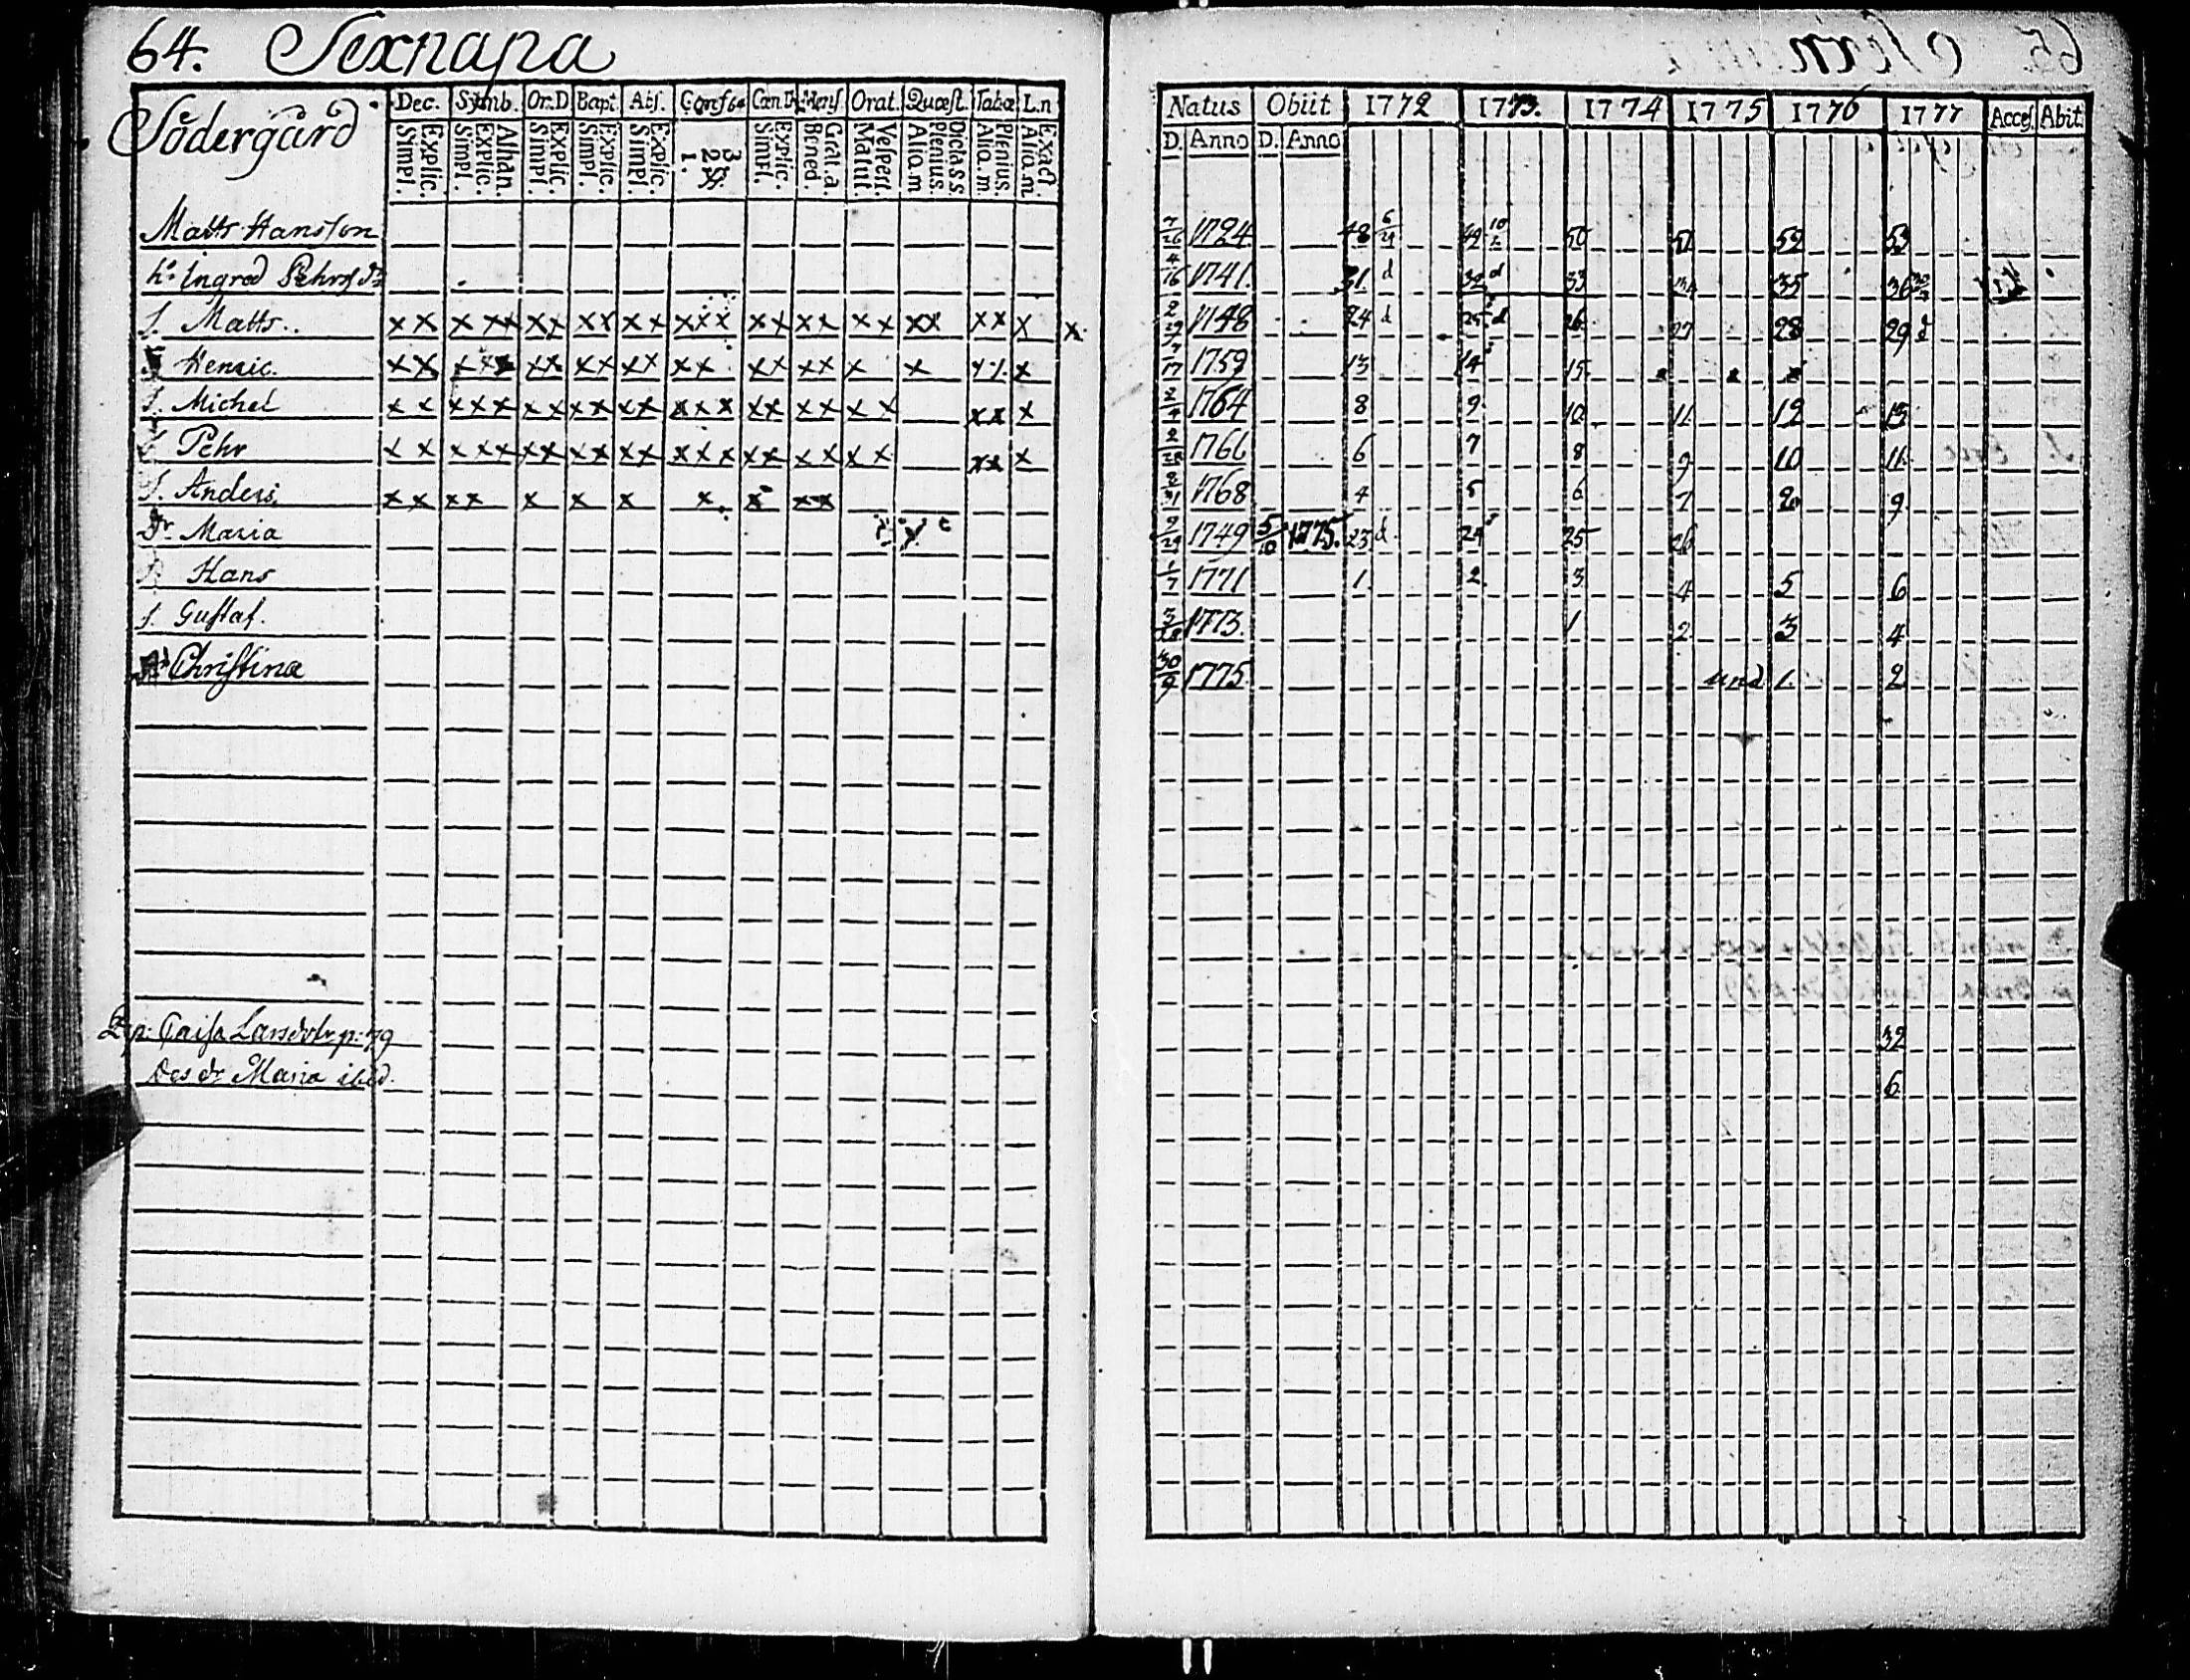 64. Sexnapa
Södergård
Dec. Symb. Or.D Bapt. Abs. Confes. Cœn.D Mens. Orat. Quæst. Tabæ L.n
Simpl. Explic. Simpl. Explic. Athan. Simpl. Explic. Simpl. Explic. Simpl. Explic. 1. 2. 3 Simpl. Explic. Bened. Grat.a. Matut. Vespert. Alia.m Plenius. Alia.m. Plenius. Alia.m. Exact.
Natus Obiit 1772 1773. 1774 1775 1776 1777 Acces. Abit.
D. Anno D. Anno
Matts Hansson 7/26 1724 48 6/29 49 10/2 50 51 52 53
h:o Ingred Pehrs dr 4/16 1741. 31. d 32 d 33 34 35 36
S. Matts.. x x x x x x x x x x x x x x x x x x x x x x x x x x x 1748 24 d 25 d 26 27 28 29 d
Henric. x x x x x x x x x x x x x x x x x x x x x x 17 1759 13 14 15
S. Michel x x x x x x x x x x x x x x x x x x x x x x x 2/4 1764 8 9 10 11. 12 13
S. Pehr x x x x x x x x x x x x x x x x x x x x x x x 2/28 1766 6 7 8 9 10 11
S. Anders x x x x x x x x x x x 1768 4 5 6 7 8 9
Dr Maria 9/29 1749 5/10 1775. 23 d. 24 25 26
Hans 1/7 1771 1. 2 3 4 5 6
S. Gustaf. 1773. 1 2 3 4
Christina 30/9 1775. und 1. 2
Pip: Caisa Larsdotr p: 79 32
Des dr Maria ibid. 6